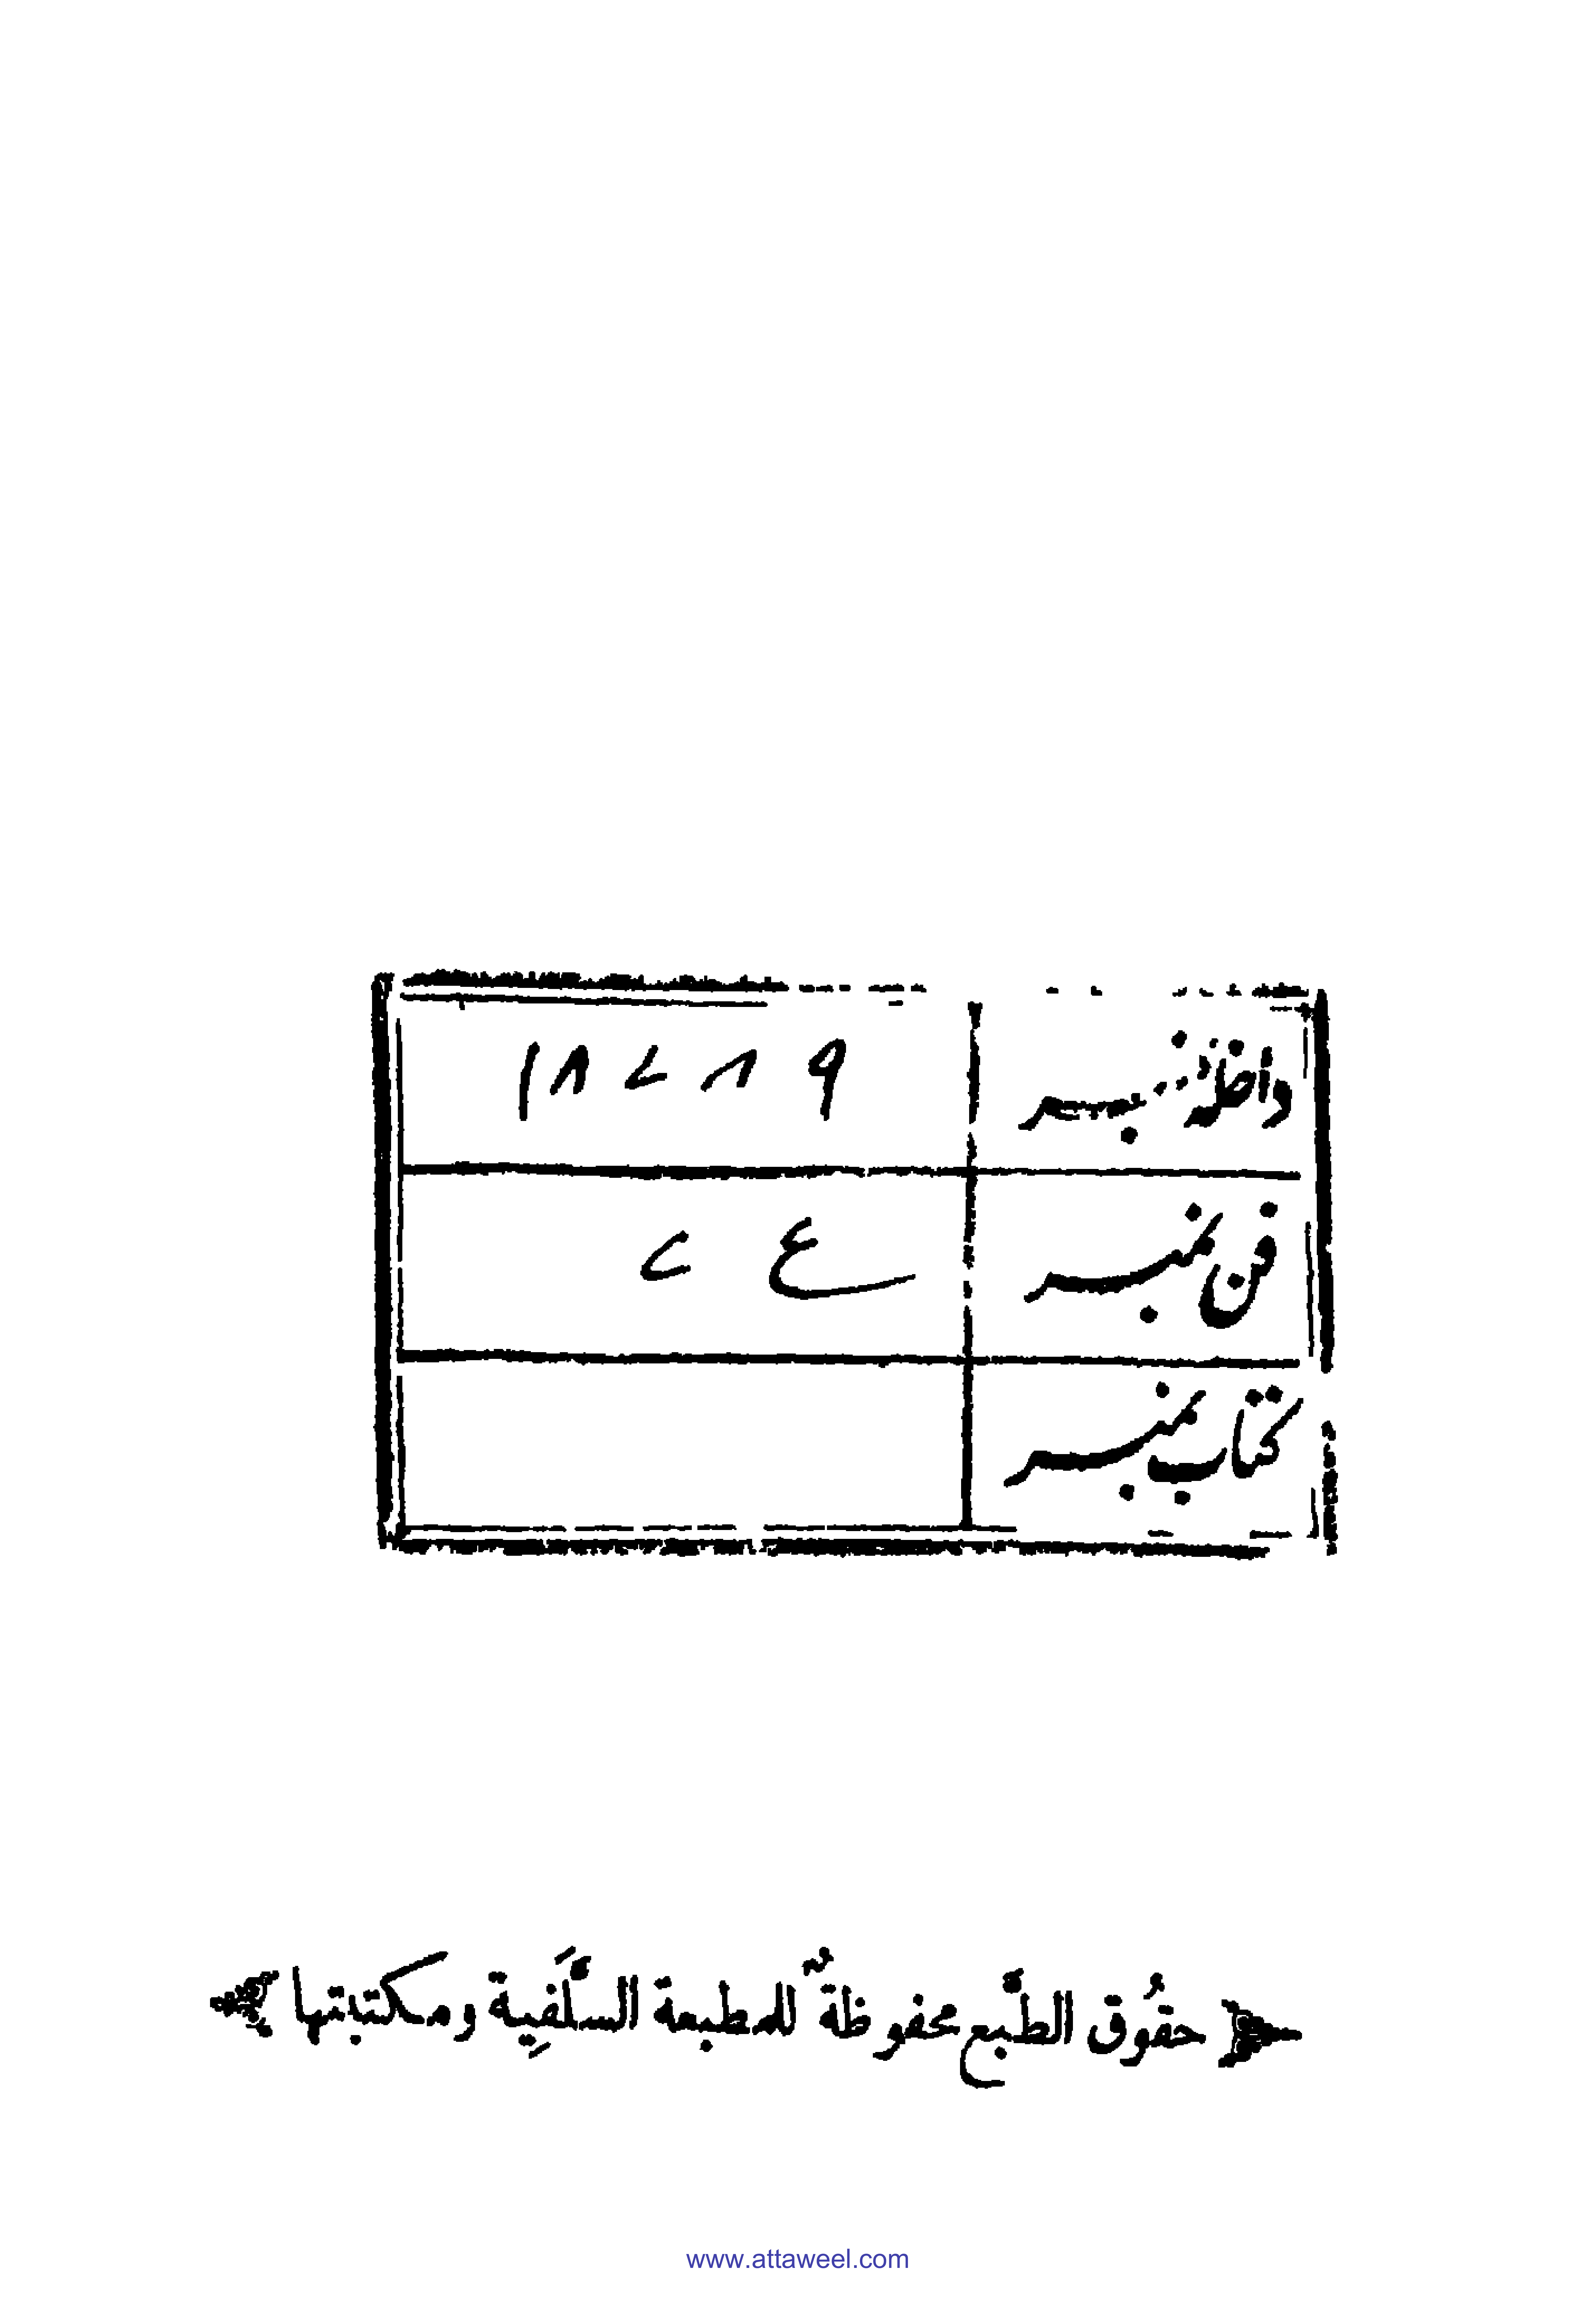 داخلہ نمبر ۱۸۷۸۹
فن نمبر ع ۷
کتاب نمبر
حقُوق الطَّبع محفوظةٌ للمطبعة السَّلَفِية ومكتبتها
www.attaweel.com